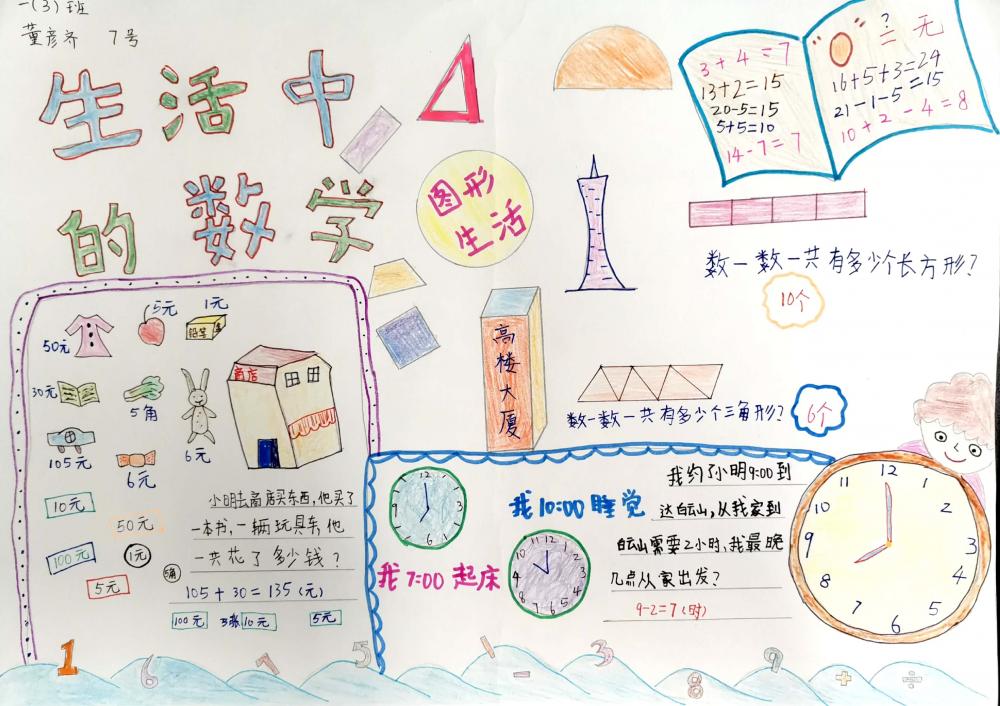 一(3)班
董彦齐 7号
生活中
的数学
图形
生活
3+4=7
13+2=15
20-5=15
5+5=10
14-7=7
?
= 无
16+5+3=24
21-1-5=15
10+2-4=8
数一数一共有多少个长方形?
10个
高楼大厦
数一数一共有多少个三角形?
6个
50元
5元
1元
铅笔
30元
5角
商店
105元
6元
6元
10元
50元
100元
1元
5元
5角
小明去商店买东西,他买了
一本书,一辆玩具车,他
一共花了多少钱?
105+30=135(元)
100元 3张10元 5元
12
3
6
9
我7:00起床
我10:00睡觉
12
1
2
3
4
5
6
7
8
9
10
11
我约了小明9:00到
达白云山,从我家到
白云山需要2小时,我最晚
几点从家出发?
9-2=7(时)
12
1
2
3
4
5
6
7
8
9
10
11
1 6 7 5 1 - 3 8 9 + ÷